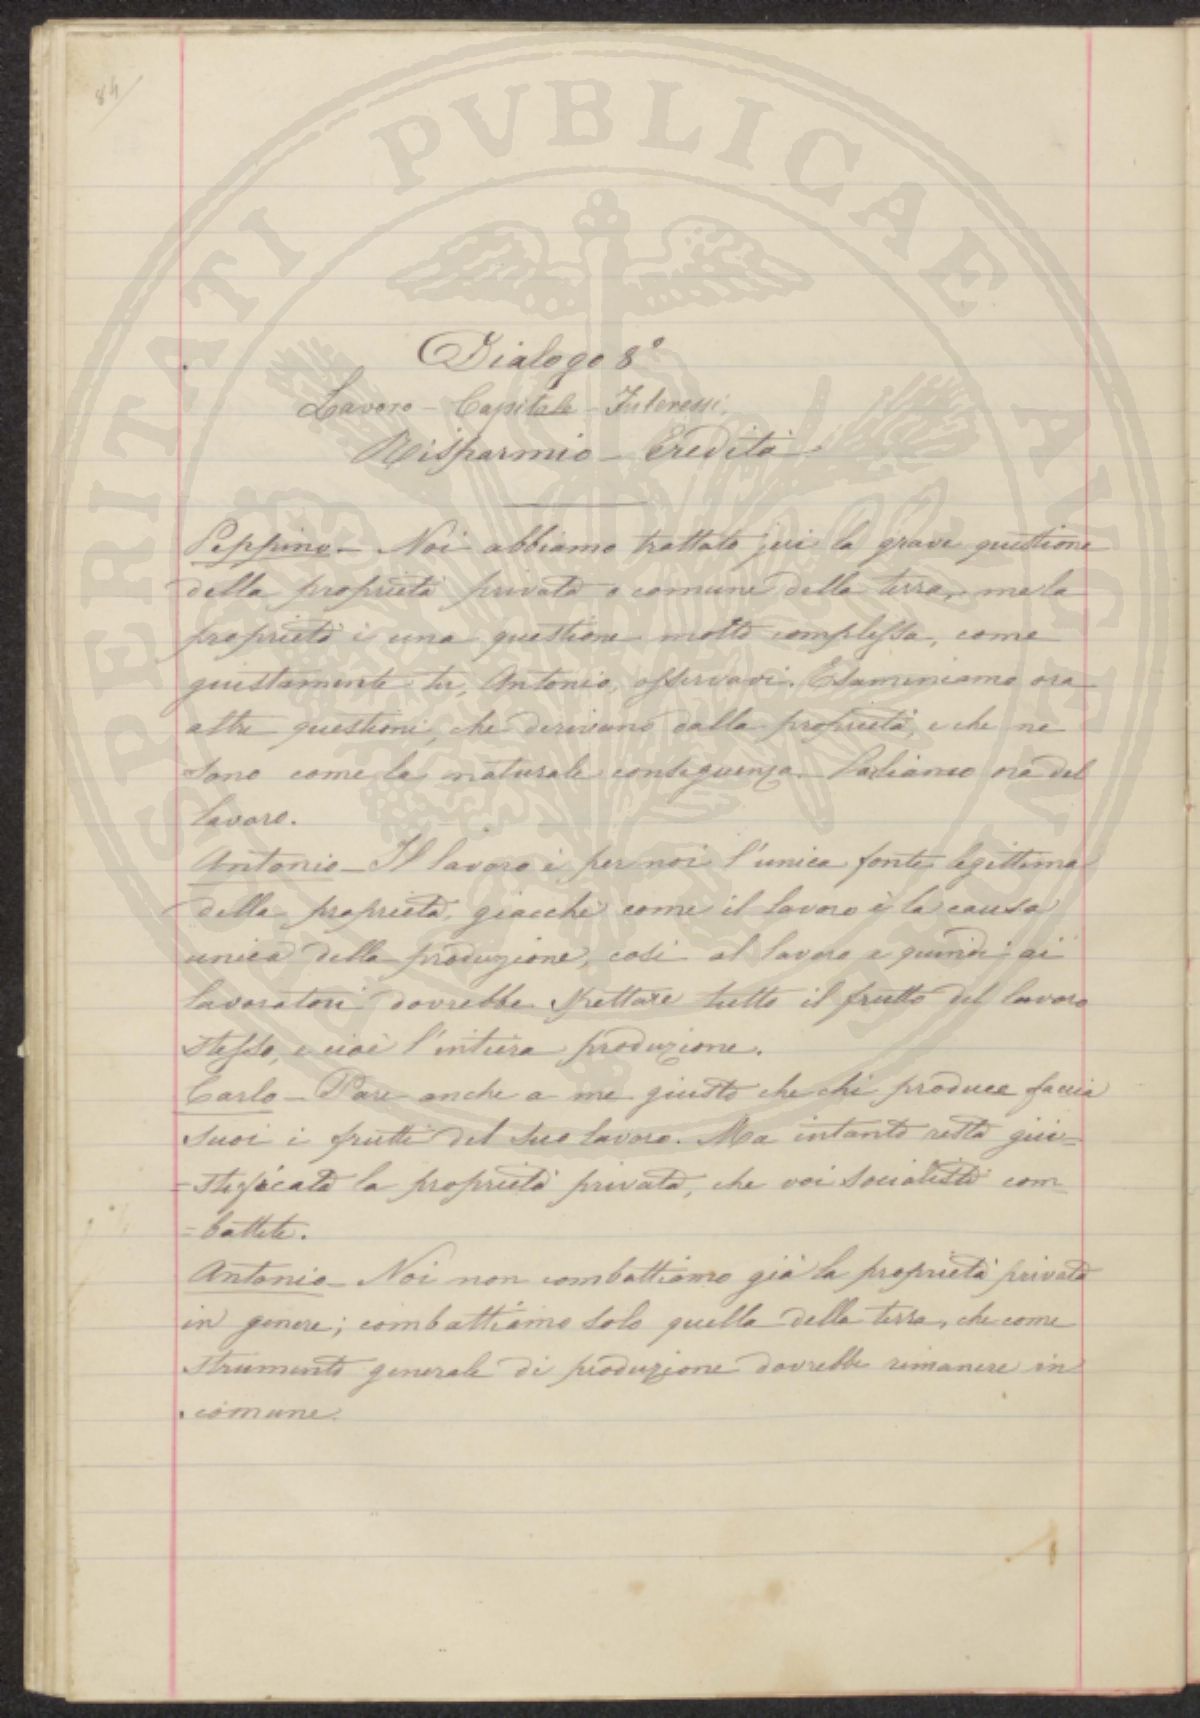 84
PROSPERITATI PUBLICAE AUGENDAE
Dialogo 8°
Lavoro - Capitale - Interessi
Risparmio - Eredità.
Peppino - Noi abbiamo trattato jeri la grave questione
della proprietà privata o comune della terra, ma la
proprietà è una questione molto complessa, come
giustamente tu, Antonio, osservavi. Esaminiamo ora
altre questioni, che derivano dalla proprietà, e che ne
sono come la naturale conseguenza. Parliamo ora del
lavoro.
Antonio - Il lavoro è per noi l'unica fonte legittima
della proprietà, giacchè come il lavoro è la causa
unica della produzione, così al lavoro e quindi ai
lavoratori dovrebbe spettare tutto il frutto del lavoro
stesso, e cioè l'intiera produzione.
Carlo - Pare anche a me giusto che chi produce faccia
suoi i frutti del suo lavoro. Ma intanto resta giu=
=stificata la proprietà privata, che voi socialisti com=
=battete.
Antonio - Noi non combattiamo già la proprietà privata
in genere; combattiamo solo quella della terra, che come
strumento generale di produzione dovrebbe rimanere in
comune.